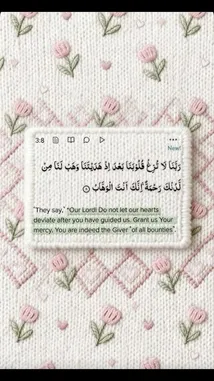 3:8
New!
رَبَّنَا لَا تُزِغْ قُلُوبَنَا بَعْدَ إِذْ هَدَيْتَنَا وَهَبْ لَنَا مِن
لَّدُنكَ رَحْمَةً ۚ إِنَّكَ أَنتَ الْوَهَّابُ
"They say," "Our Lord! Do not let our hearts
deviate after you have guided us. Grant us Your
mercy. You are indeed the Giver "of all bounties".